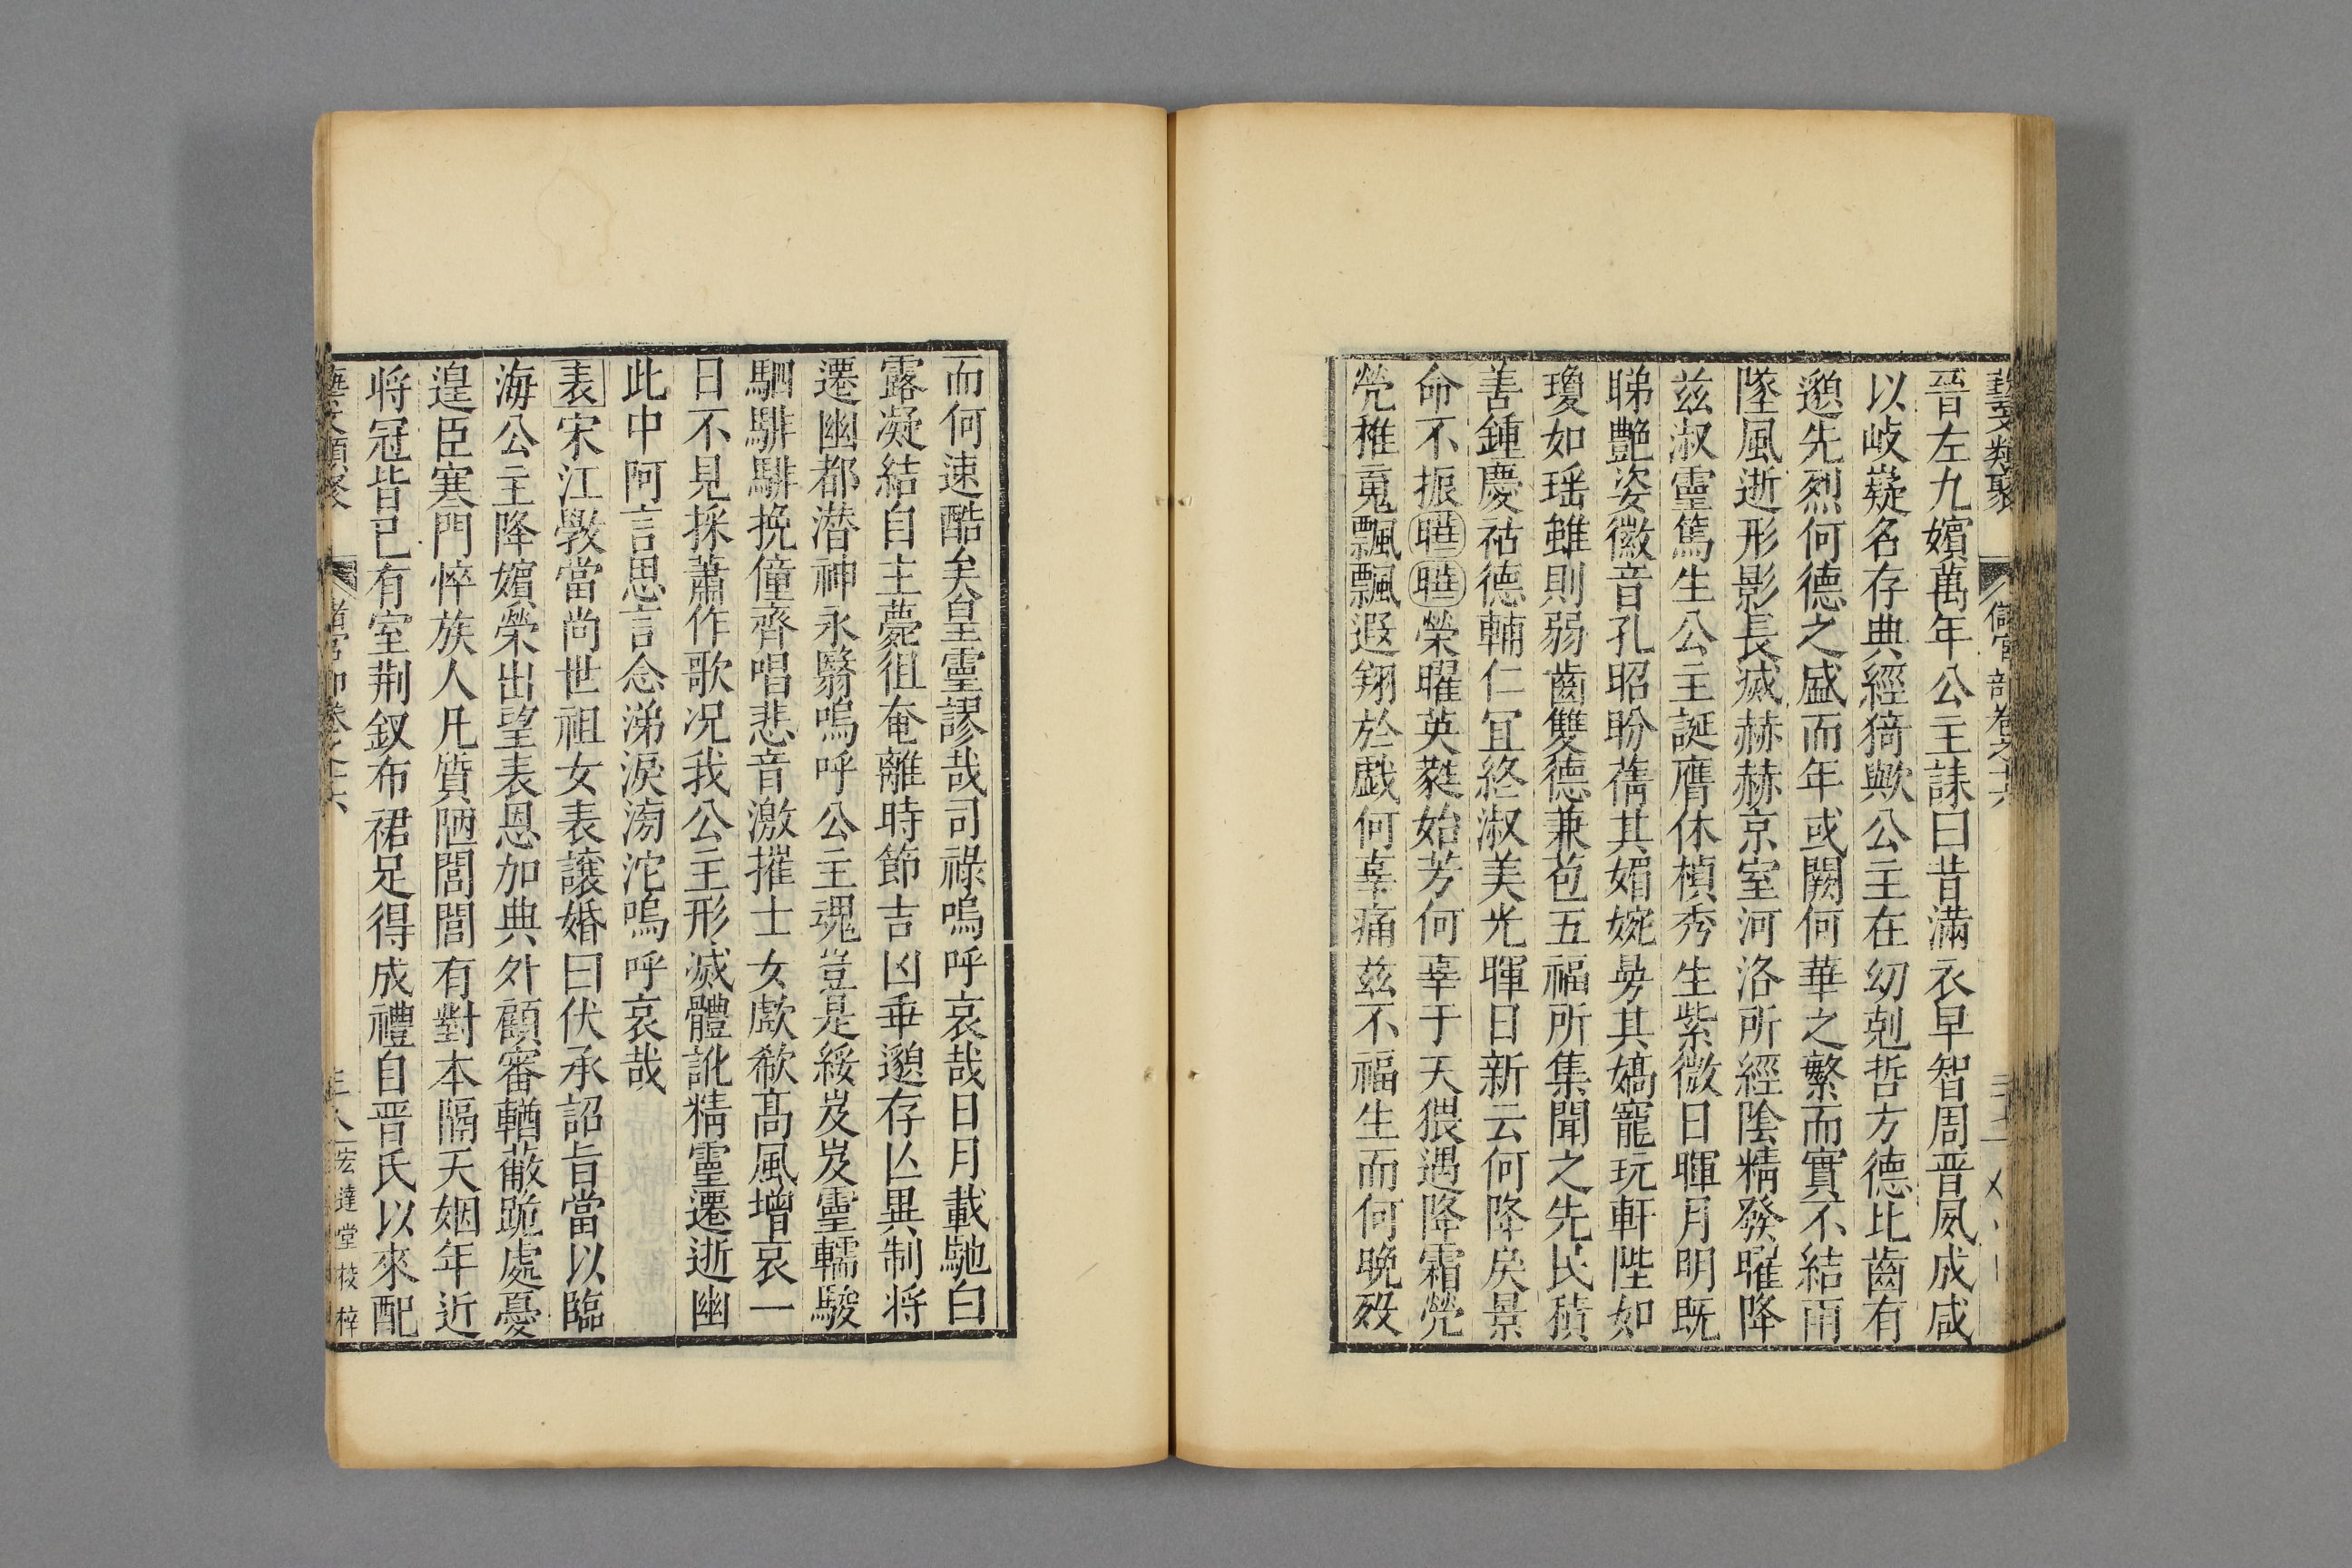 藝文類聚 儲宮部卷之十六
晉左九嬪萬年公主誄曰昔滿衣早智周晋夙成咸
以岐嶷名存典經猗歟公主在幼剋哲方德比齒有
邈先烈何德之盛而年或闕何華之繁而實不結雨
墜風逝形影長滅赫赫京室河洛所經陰精發曜降
兹淑靈篤生公主誕膺休楨秀生紫微日暉月明既
睇艷姿徽音孔昭盼蒨其媚婉㫄其嬌寵玩軒陛如
瓊如瑶雖則弱齒雙德兼苞五福所集聞之先民積
善鍾慶祜德輔仁冝終淑美光暉日新云何降戾景
命不振曄曄榮曜英蕤始芳何辜于天猥遇降霜煢
煢稚䰟飄飄遐翔於戯何辜痛兹不福生而何晚殁
而何速酷矣皇靈謬哉司祿嗚呼哀哉日月載馳白
露凝結自主薨徂奄離時節吉凶乖邈存亾異制将
遷幽都潜神永翳嗚呼公主魂豈是綏岌岌靈轜駿
駟騑騑挽僮齊唱悲音激摧士女歔欷高風增哀一
日不見採蕭作歌况我公主形滅體訛精靈遷逝幽
此中阿言思言念涕淚滂沱嗚呼哀哉
表宋江斆當尚世祖女表讓婚曰伏承詔旨當以臨
海公主降嬪榮出望表恩加典外顧審輶蔽跪處憂
遑臣寒門悴族人凡質陋閭閻有對本隔天姻年近
将冠皆已有室荆釵布裙足得成禮自晋氏以來配
藝文類聚 儲宮部卷之十六 宏達堂校梓